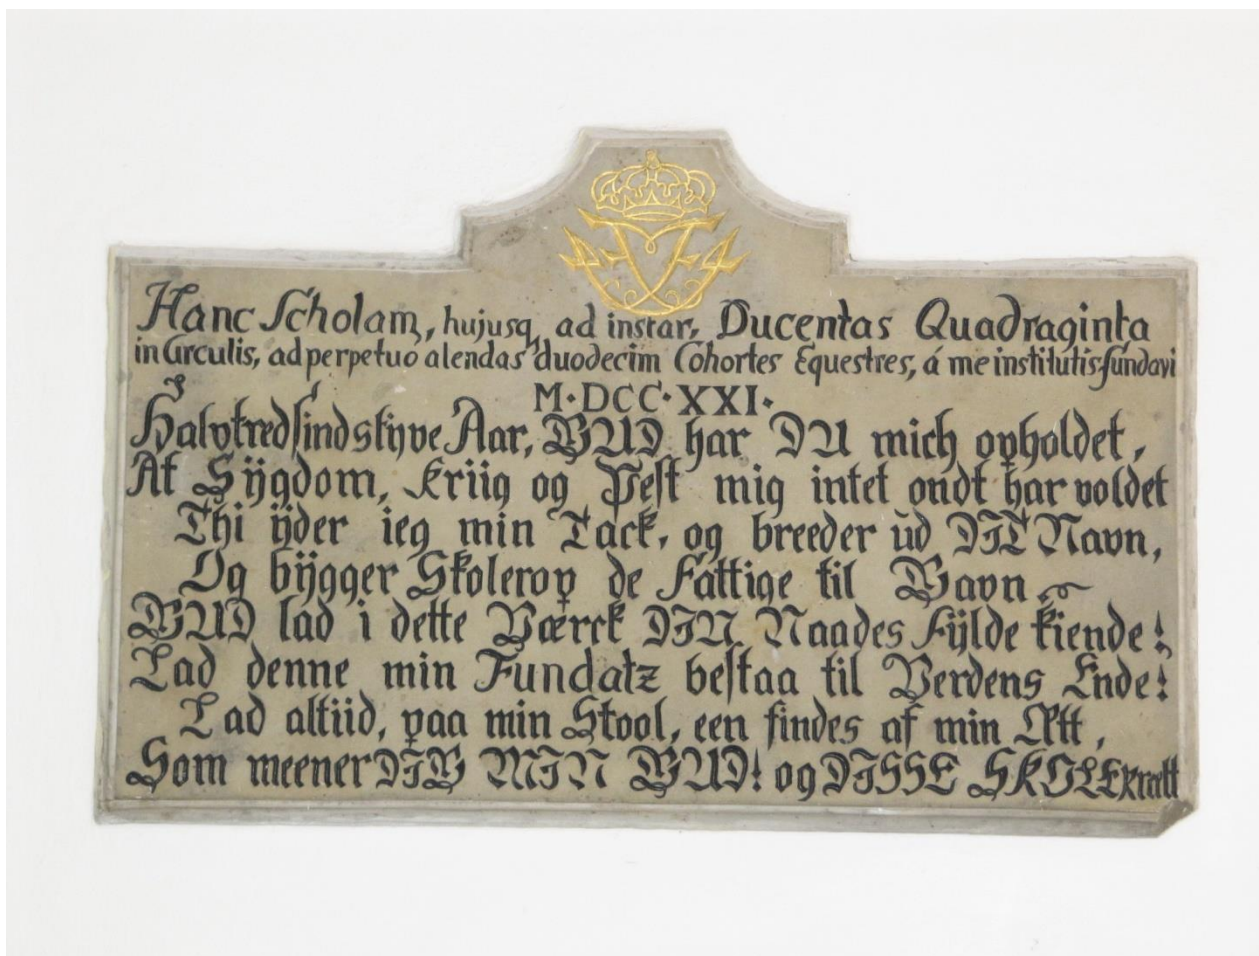 Hanc Scholam, hujusq, ad instar, Ducentas Quadraginta
in Circulis, ad perpetuo alendas duodecim Cohortes Equestres, á me institutis fundavi
M·DCC·XXI·
Halvtredsindstyve Aar, GUD har DU mich opholdet,
At Sÿgdom, Kriig og Pest mig intet ondt har voldet
Thi ÿder ieg min Tack, og breeder ud DIT Navn,
Og bÿgger Skolerop de Fattige til Gavn
GUD lad i dette Værck DIN Naades Fÿlde kiende!
Lad denne min Fundatz bestaa til Verdens Ende!
Lad altiid, paa min Stool, een findes af min Ætt,
Som meener DIG MIN GUD! og DISSE SKOLER rætt